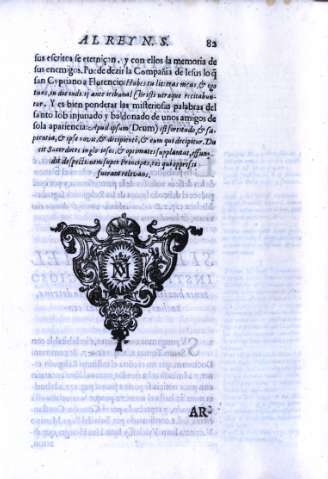 AL REY N. S. 82
sus escritos se eternicen, y con ellos la memoria de
sus enemigos. Puede dezir la Compañia de Iesus lo q̃
san Cypriano a Florencio: Habes tu literas meas, & ego
tuas, in die iudicij ante tribunal Christi utræque recitabun-
tur. Y es bien ponderar las misteriosas palabras del
santo Iob injuriado y baldonado de unos amigos de
sola apariencia: Apud ipsum (Deum) est fortitudo, & sa-
pientia, & ipse novit, & decipientē, & eum qui decipitur. Du-
cit Sacerdotes inglorios, & optimates supplantat, effun-
dit despectionem super Principes, eos qui oppressi
fuerant relevans.
AR-